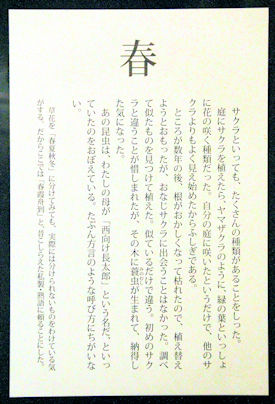 春
サクラといっても、たくさんの種類があることをしった。
庭にサクラを植えたら、ヤマザクラのように、緑の葉といっしょ
に花の咲く種類だった。自分の庭に咲いたというだけで、他のサ
クラよりもよく見え始めたからふしぎである。
ところが数年の後、根がおかしくなって枯れたので、植え替え
ようとおもったが、おなじサクラに出会うことはなかった。調べ
て似たものを見つけて植えた。似ているだけで違う。初めのサク
ラと違うことが惜しまれたが、その木に蓑虫が生まれて、納得し
た気になった。
あの昆虫は、わたしの母が「西向け長太郎」という名だ、といっ
ていたのをおぼえている。たぶん方言のような呼び方にちがいな
い。
草花を「春夏秋冬」に分けてみても、実際には分けられないものをわけている気
がする。だからここでは「春霞舟到」と、昔ごしらえた私製・熟語に頼ることにした。